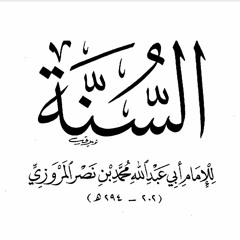 السُّنَّة
لِلإِمَامِ أَبِي عَبْدِ اللهِ مُحَمَّدِ بْنِ نَصْرٍ المَرْوَزِيِّ
(٢٠٢ - ٢٩٤ هـ)